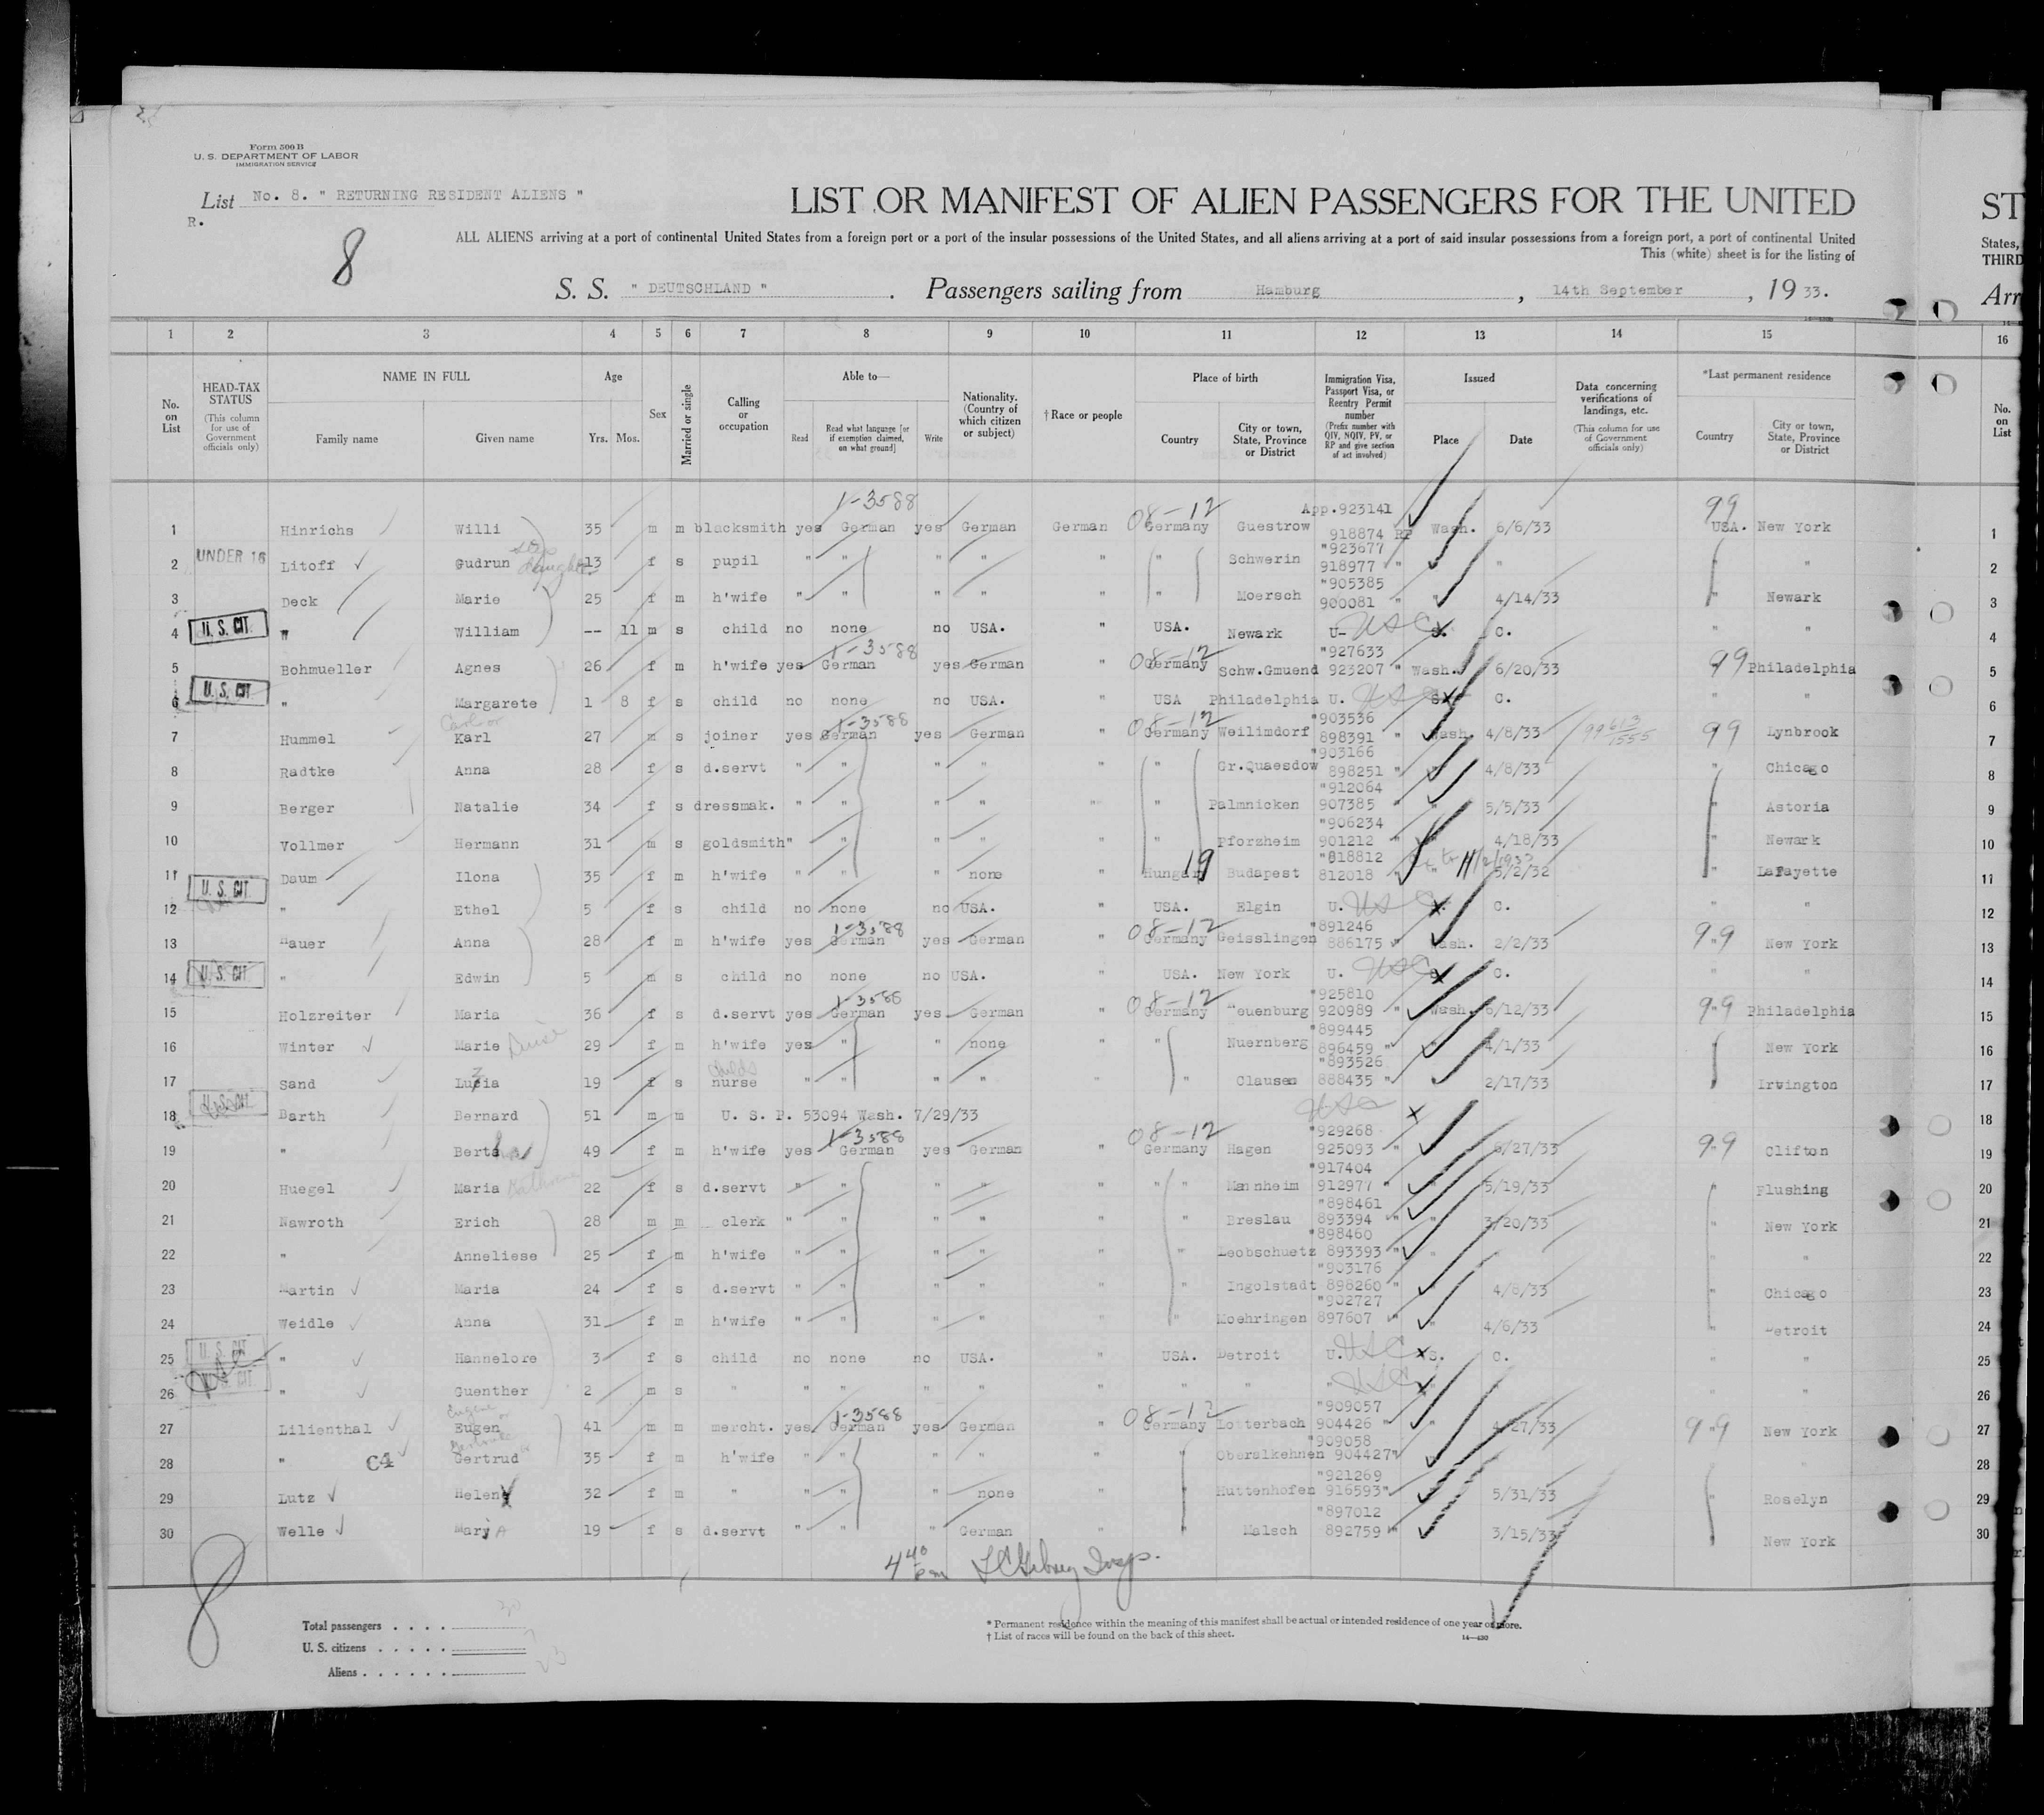 Form 500 B
U. S. DEPARTMENT OF LABOR
IMMIGRATION SERVICE
List No. 8. " RETURNING RESIDENT ALIENS "
R.
8
LIST OR MANIFEST OF ALIEN PASSENGERS FOR THE UNITED
ST
ALL ALIENS arriving at a port of continental United States from a foreign port or a port of the insular possessions of the United States, and all aliens arriving at a port of said insular possessions from a foreign port, a port of continental United
States,
This (white) sheet is for the listing of
THIRD
S. S. " DEUTSCHLAND " . Passengers sailing from Hamburg , 14th September , 19 33.
Arr
1 2 3 4 5 6 7 8 9 10 11 12 13 14 15 16
No. on List
HEAD-TAX STATUS (This column for use of Government officials only)
NAME IN FULL
Family name
Given name
Age
Yrs. Mos.
Sex
Married or single
Calling or occupation
Able to—
Read
Read what language [or if exemption claimed, on what ground]
Write
Nationality. (Country of which citizen or subject)
† Race or people
Place of birth
Country
City or town, State, Province or District
Immigration Visa, Passport Visa, or Reentry Permit number (Prefix number with QIV, NQIV, PV, or RP and give section of act involved)
Issued
Place
Date
Data concerning verifications of landings, etc. (This column for use of Government officials only)
*Last permanent residence
Country
City or town, State, Province or District
No. on List
1-3588 08-12 App.923141 99
1 Hinrichs Willi 35 m m blacksmith yes German yes German German Germany Guestrow 918874 RP Wash. 6/6/33 USA. New York 1
UNDER 16 step daughter "923677
2 Litoff Gudrun 13 f s pupil " " " " " " Schwerin 918977 " " " " 2
"905385
3 Deck Marie 25 f m h'wife " " " " " " Moersch 900081 " " 4/14/33 " Newark 3
U. S. CIT.
4 " William -- 11 m s child no none no USA. " USA. Newark U- USC S. C. " " 4
1-3588 08-12 "927633
5 Bohmueller Agnes 26 f m h'wife yes German yes German " Germany Schw.Gmuend 923207 " Wash. 6/20/33 99 Philadelphia 5
U. S. CIT
6 " Margarete 1 8 f s child no none no USA. " USA Philadelphia U. USC S. C. " " 6
Carl or 1-3588 08-12 "903536
7 Hummel Karl 27 m s joiner yes German yes German " Germany Weilimdorf 898391 " Wash. 4/8/33 99 Lynbrook 7
"903166
8 Radtke Anna 28 f s d.servt " " " " " " Gr.Quaesdow 898251 " " 4/8/33 " Chicago 8
"912064
9 Berger Natalie 34 f s dressmak. " " " " " " Palmnicken 907385 " " 5/5/33 " Astoria 9
"906234
10 Vollmer Hermann 31 m s goldsmith " " " " " " Pforzheim 901212 " " 4/18/33 " Newark 10
19 "818812
11 Daum Ilona 35 f m h'wife " " " none " Hungary Budapest 812018 " " 5/2/32 " LaFayette 11
U. S. CIT
12 " Ethel 5 f s child no none no USA. " USA. Elgin U. USC C. " " 12
1-3588 08-12 "891246
13 Hauer Anna 28 f m h'wife yes German yes German " Germany Geisslingen 886175 " Wash. 2/2/33 99 New York 13
U. S. CIT
14 " Edwin 5 m s child no none no USA. " USA. New York U. USC S. C. " " 14
1-3588 08-12 "925810
15 Holzreiter Maria 36 f s d.servt yes German yes German " Germany Neuenburg 920989 " Wash. 6/12/33 99 Philadelphia 15
"899445
16 Winter Marie 29 f m h'wife yes " " none " " Nuernberg 896459 " " 4/1/33 New York 16
childs "893526
17 Sand Luzia 19 f s nurse " " " " " " Clausen 888435 " 2/17/33 Irvington 17
18 Barth Bernard 51 m m U. S. P. 53094 Wash. 7/29/33 18
1-3588 08-12 "929268
19 " Bertha 49 f m h'wife yes German yes German " Germany Hagen 925093 " 6/27/33 99 Clifton 19
"917404
20 Huegel Maria 22 f s d.servt " " " " " " " Mannheim 912977 " " 5/19/33 Flushing 20
"898461
21 Nawroth Erich 28 m m clerk " " " " " " Breslau 893394 " " 3/20/33 " New York 21
"898460
22 " Anneliese 25 f m h'wife " " " " " " Leobschuetz 893393 " " " " 22
"903176
23 Martin Maria 24 f s d.servt " " " " " " Ingolstadt 898260 " 4/8/33 " Chicago 23
"902727
24 Weidle Anna 31 f m h'wife " " " " " " Moehringen 897607 " " 4/6/33 " Detroit 24
U. S. CIT
25 " Hannelore 3 f s child no none no USA. " USA. Detroit U. USC S. C. " " 25
26 " Guenther 2 m s " " " " " " " " " USC " " " " 26
Eugene or 1-3588 08-12 "909057
27 Lilienthal Eugen 41 m m mercht. yes German yes German " Germany Lotterbach 904426 " " 4/27/33 99 New York 27
Gertrude or "909058
28 " C4 Gertrud 35 f m h'wife " " " " " " Oberalkehnen 904427 " " 28
"921269
29 Lutz Helen 32 f m " " " " none " " Huttenhofen 916593 " 5/31/33 " Roselyn 29
"897012
30 Welle Maria 19 f s d.servt " " " German " " Malsch 892759 " " 3/15/33 New York 30
4 40 pm
8
Total passengers . . . . 30
U. S. citizens . . . . . 7
Aliens . . . . . . 23
* Permanent residence within the meaning of this manifest shall be actual or intended residence of one year or more.
† List of races will be found on the back of this sheet.
14—430